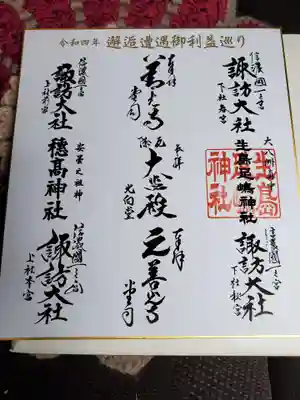 令和四年 邂逅遭遇御利益巡り
信濃國一之宮
諏訪大社
下社春宮
大八洲之中
生島足嶋神社
生島足島神社
信濃國一之宮
諏訪大社
下社秋宮
奉拝
善光寺
堂司
奉拝
大勧進
奉拝
元善光寺
堂司
信濃國一之宮
諏訪大社
上社前宮
安曇之祖神
穂高神社
信濃國一之宮
諏訪大社
上社本宮